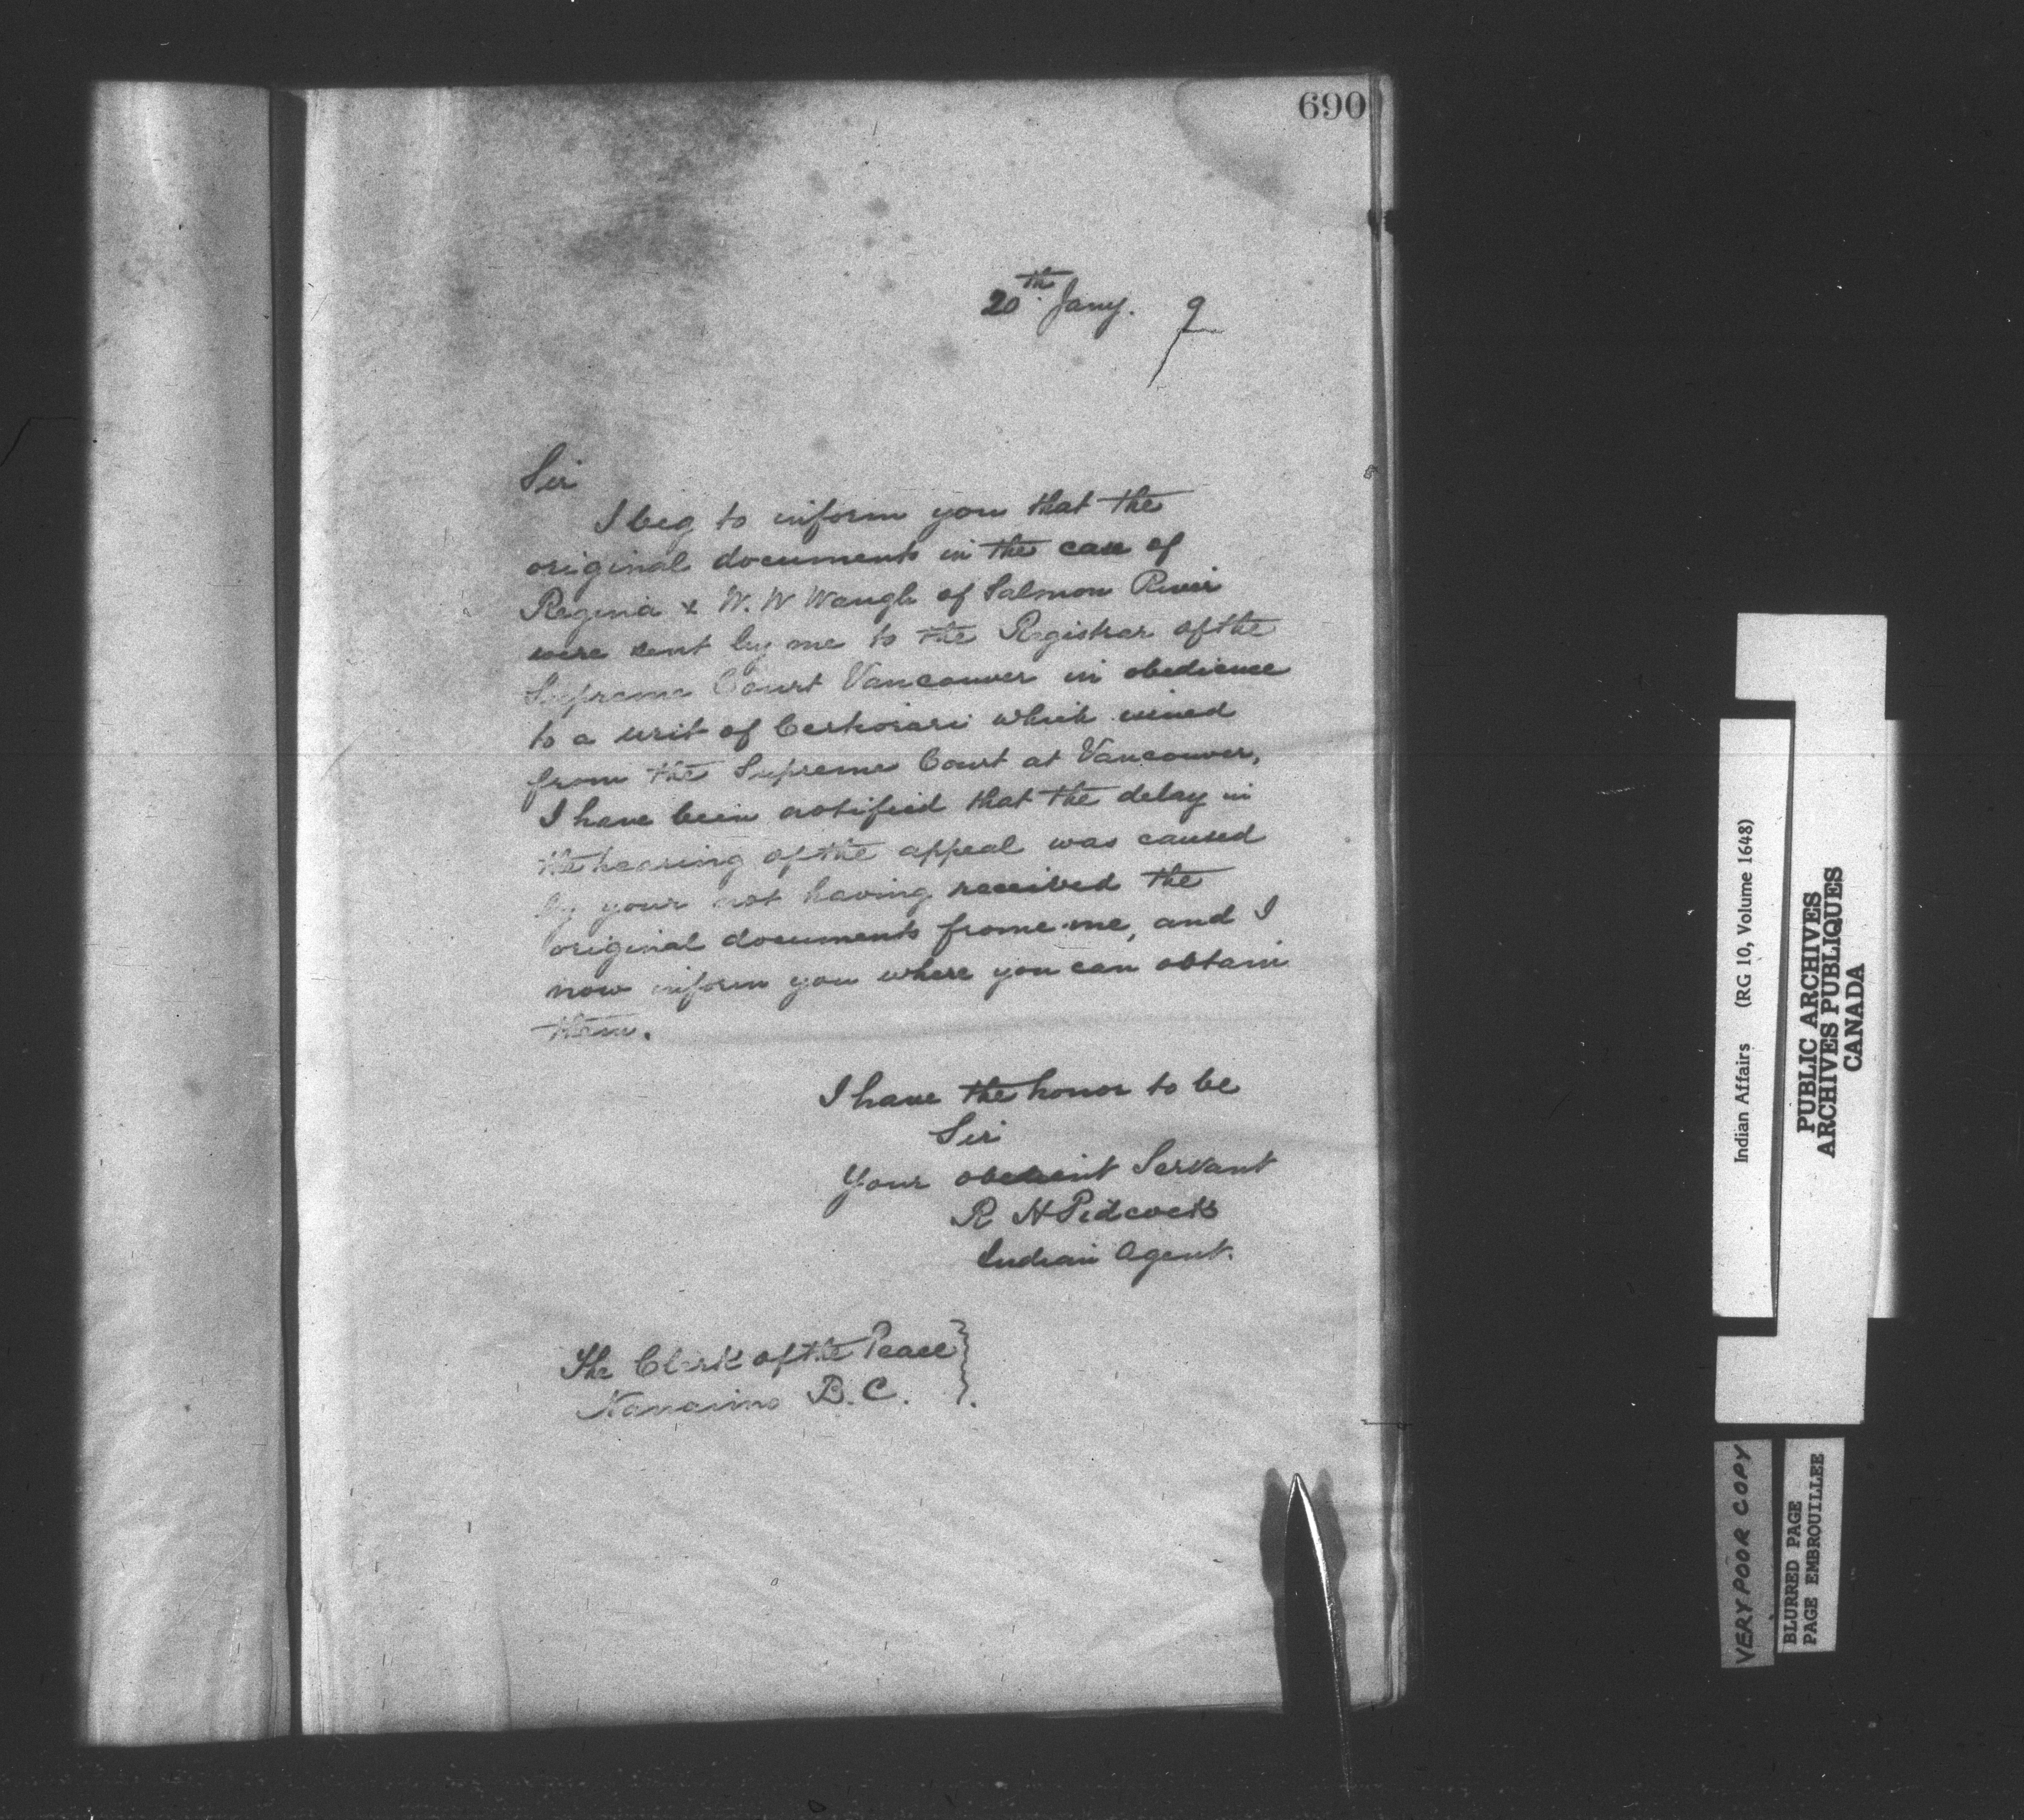 690
20th Jany. 97
Sir
I beg to inform you that the
original documents in the case of
Regina & W. W Waugh of Salmon River
were sent by me to the Registrar of the
Supreme Court Vancouver in obedience
to a writ of Certiorari which issued
from the Supreme Court at Vancouver,
I have been notified that the delay in
the hearing of the appeal was caused
by your not having received the
original documents frome me, and I
now inform you where you can obtain
them.
I have the honor to be
Sir
Your obedient Servant
R H Pidcock
Indian Agent.
The Clerk of the Peace
Nanaimo B.C.
Indian Affairs (RG 10, Volume 1648)
PUBLIC ARCHIVES
ARCHIVES PUBLIQUES
CANADA
VERY POOR COPY
BLURRED PAGE
PAGE EMBROUILLEE